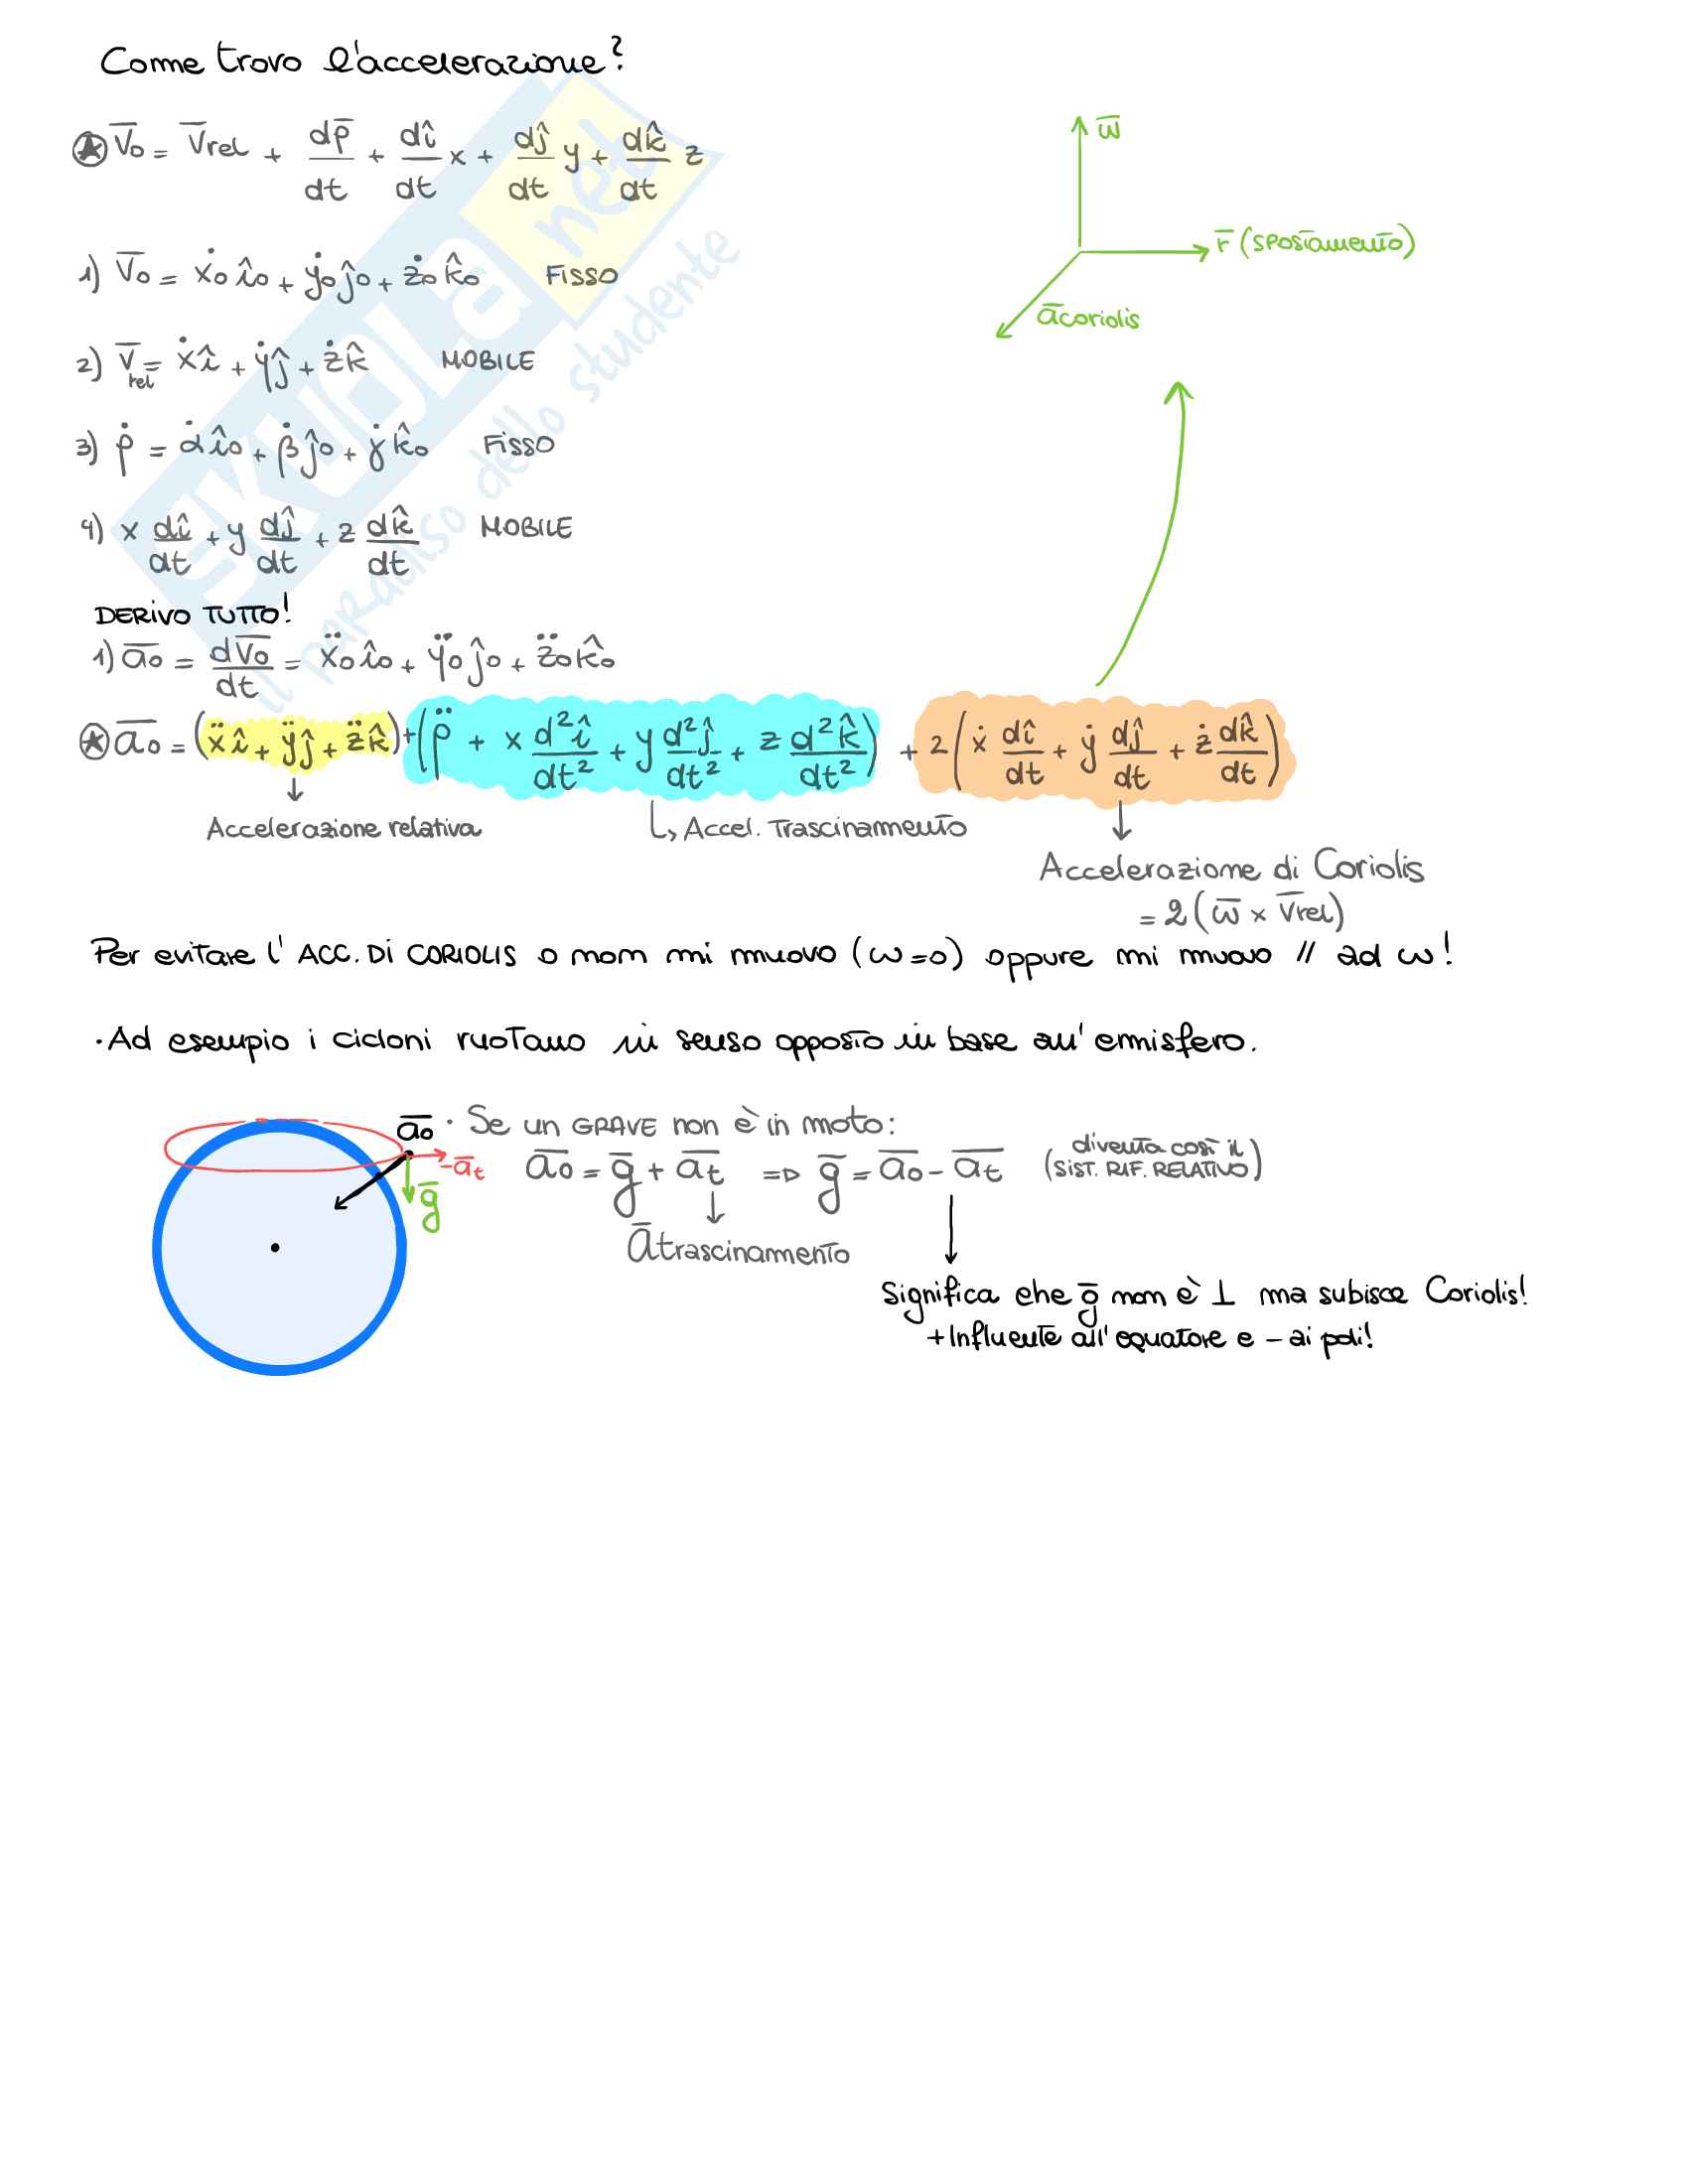 Come trovo l'accelerazione?
⍟ V̅o = V̅rel + dρ̅/dt + dî/dt x + dĵ/dt y + dk̂/dt z
ω̅
r̅ (spostamento)
a̅coriolis
1) V̅o = ẋo îo + ẏo ĵo + żo k̂o FISSO
2) V̅rel = ẋ î + ẏ ĵ + ż k̂ MOBILE
3) ρ̇ = α̇ îo + β̇ ĵo + γ̇ k̂o FISSO
4) x dî/dt + y dĵ/dt + z dk̂/dt MOBILE
DERIVO TUTTO!
1) a̅o = dV̅o/dt = ẍo îo + ÿo ĵo + z̈o k̂o
⍟ a̅o = (ẍ î + ÿ ĵ + z̈ k̂) + (ρ̈ + x d²î/dt² + y d²ĵ/dt² + z d²k̂/dt²) + 2(ẋ dî/dt + ẏ dĵ/dt + ż dk̂/dt)
↓ Accelerazione relativa
↳ Accel. Trascinamento
↓ Accelerazione di Coriolis
= 2(ω̅ × V̅rel)
Per evitare l' ACC. DI CORIOLIS o non mi muovo (ω=0) oppure mi muovo // ad ω!
· Ad esempio i cicloni ruotano in senso opposto in base all'emisfero.
a̅o
-a̅t
g̅
· Se un GRAVE non è in moto:
a̅o = g̅ + a̅t => g̅ = a̅o - a̅t (diventa così il SIST. RIF. RELATIVO)
a̅trascinamento
Significa che g̅ non è ⊥ ma subisce Coriolis!
+Influente all'equatore e - ai poli!
SKUOLA.net
il paradiso dello studente